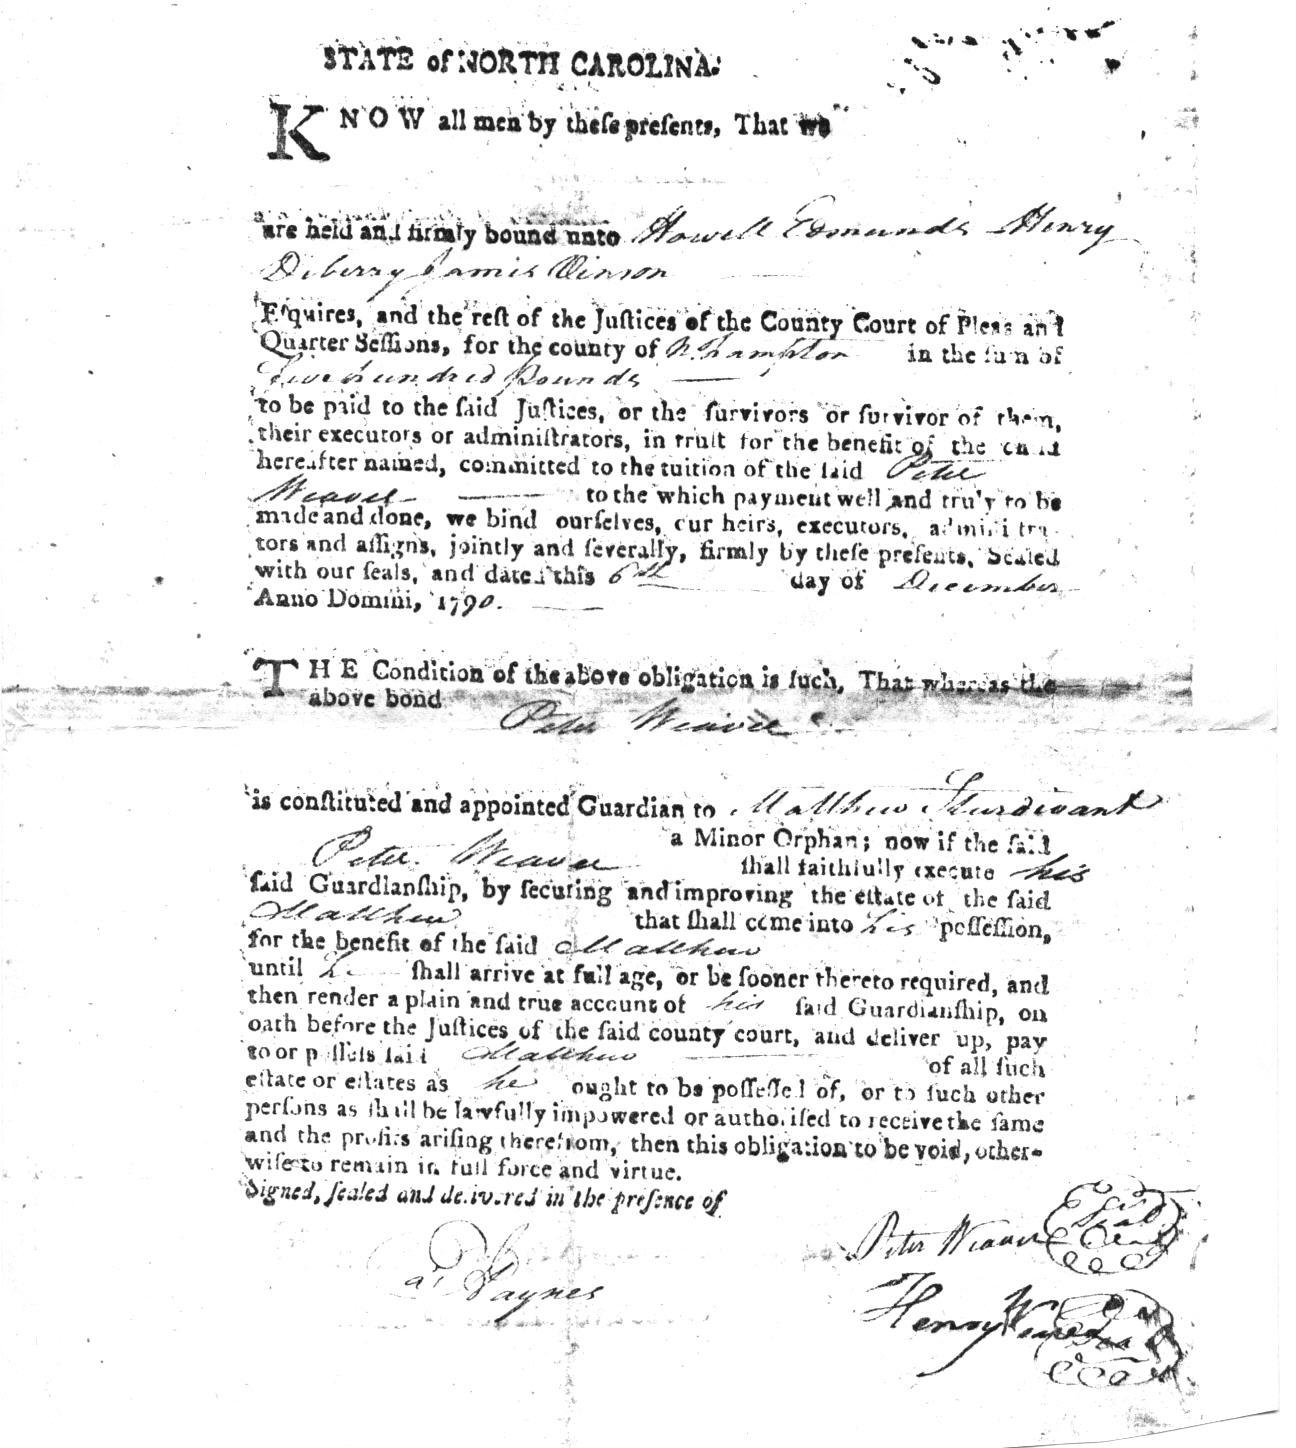 STATE of NORTH CAROLINA.
KNOW all men by theſe preſents, That we
are held and firmly bound unto Howell Edmunds Henry
Deberry James Vinson
Eſquires, and the reſt of the Juſtices of the County Court of Pleas and
Quarter Seſſions, for the county of N.hampton in the ſum of
Five hundred Pounds
to be paid to the ſaid Juſtices, or the ſurvivors or ſurvivor of them,
their executors or adminiſtrators, in truſt for the benefit of the child
hereafter named, committed to the tuition of the ſaid Peter
Weaver to the which payment well and truly to be
made and done, we bind ourſelves, our heirs, executors, adminiſtra-
tors and aſſigns, jointly and ſeverally, firmly by theſe preſents, Sealed
with our ſeals, and dated this 6th day of December
Anno Domini, 1790.
THE Condition of the above obligation is ſuch, That whereas the
above bond
Peter Weaver
is conſtituted and appointed Guardian to Matthew Sturdivant
a Minor Orphan; now if the ſaid
Peter Weaver ſhall faithfully execute his
ſaid Guardianſhip, by ſecuring and improving the eſtate of the ſaid
Matthew that ſhall come into his poſſeſſion,
for the benefit of the ſaid Matthew
until he ſhall arrive at full age, or be ſooner thereto required, and
then render a plain and true account of his ſaid Guardianſhip, on
oath before the Juſtices of the ſaid county court, and deliver up, pay
to or poſſeſs ſaid Matthew of all ſuch
eſtate or eſtates as he ought to be poſſeſſed of, or to ſuch other
perſons as ſhall be lawfully impowered or authoriſed to receive the ſame
and the profits ariſing therefrom, then this obligation to be void, other-
wiſe to remain in full force and virtue.
Signed, ſealed and delivered in the preſence of
Peter Weaver Seal
Haynes
Henry